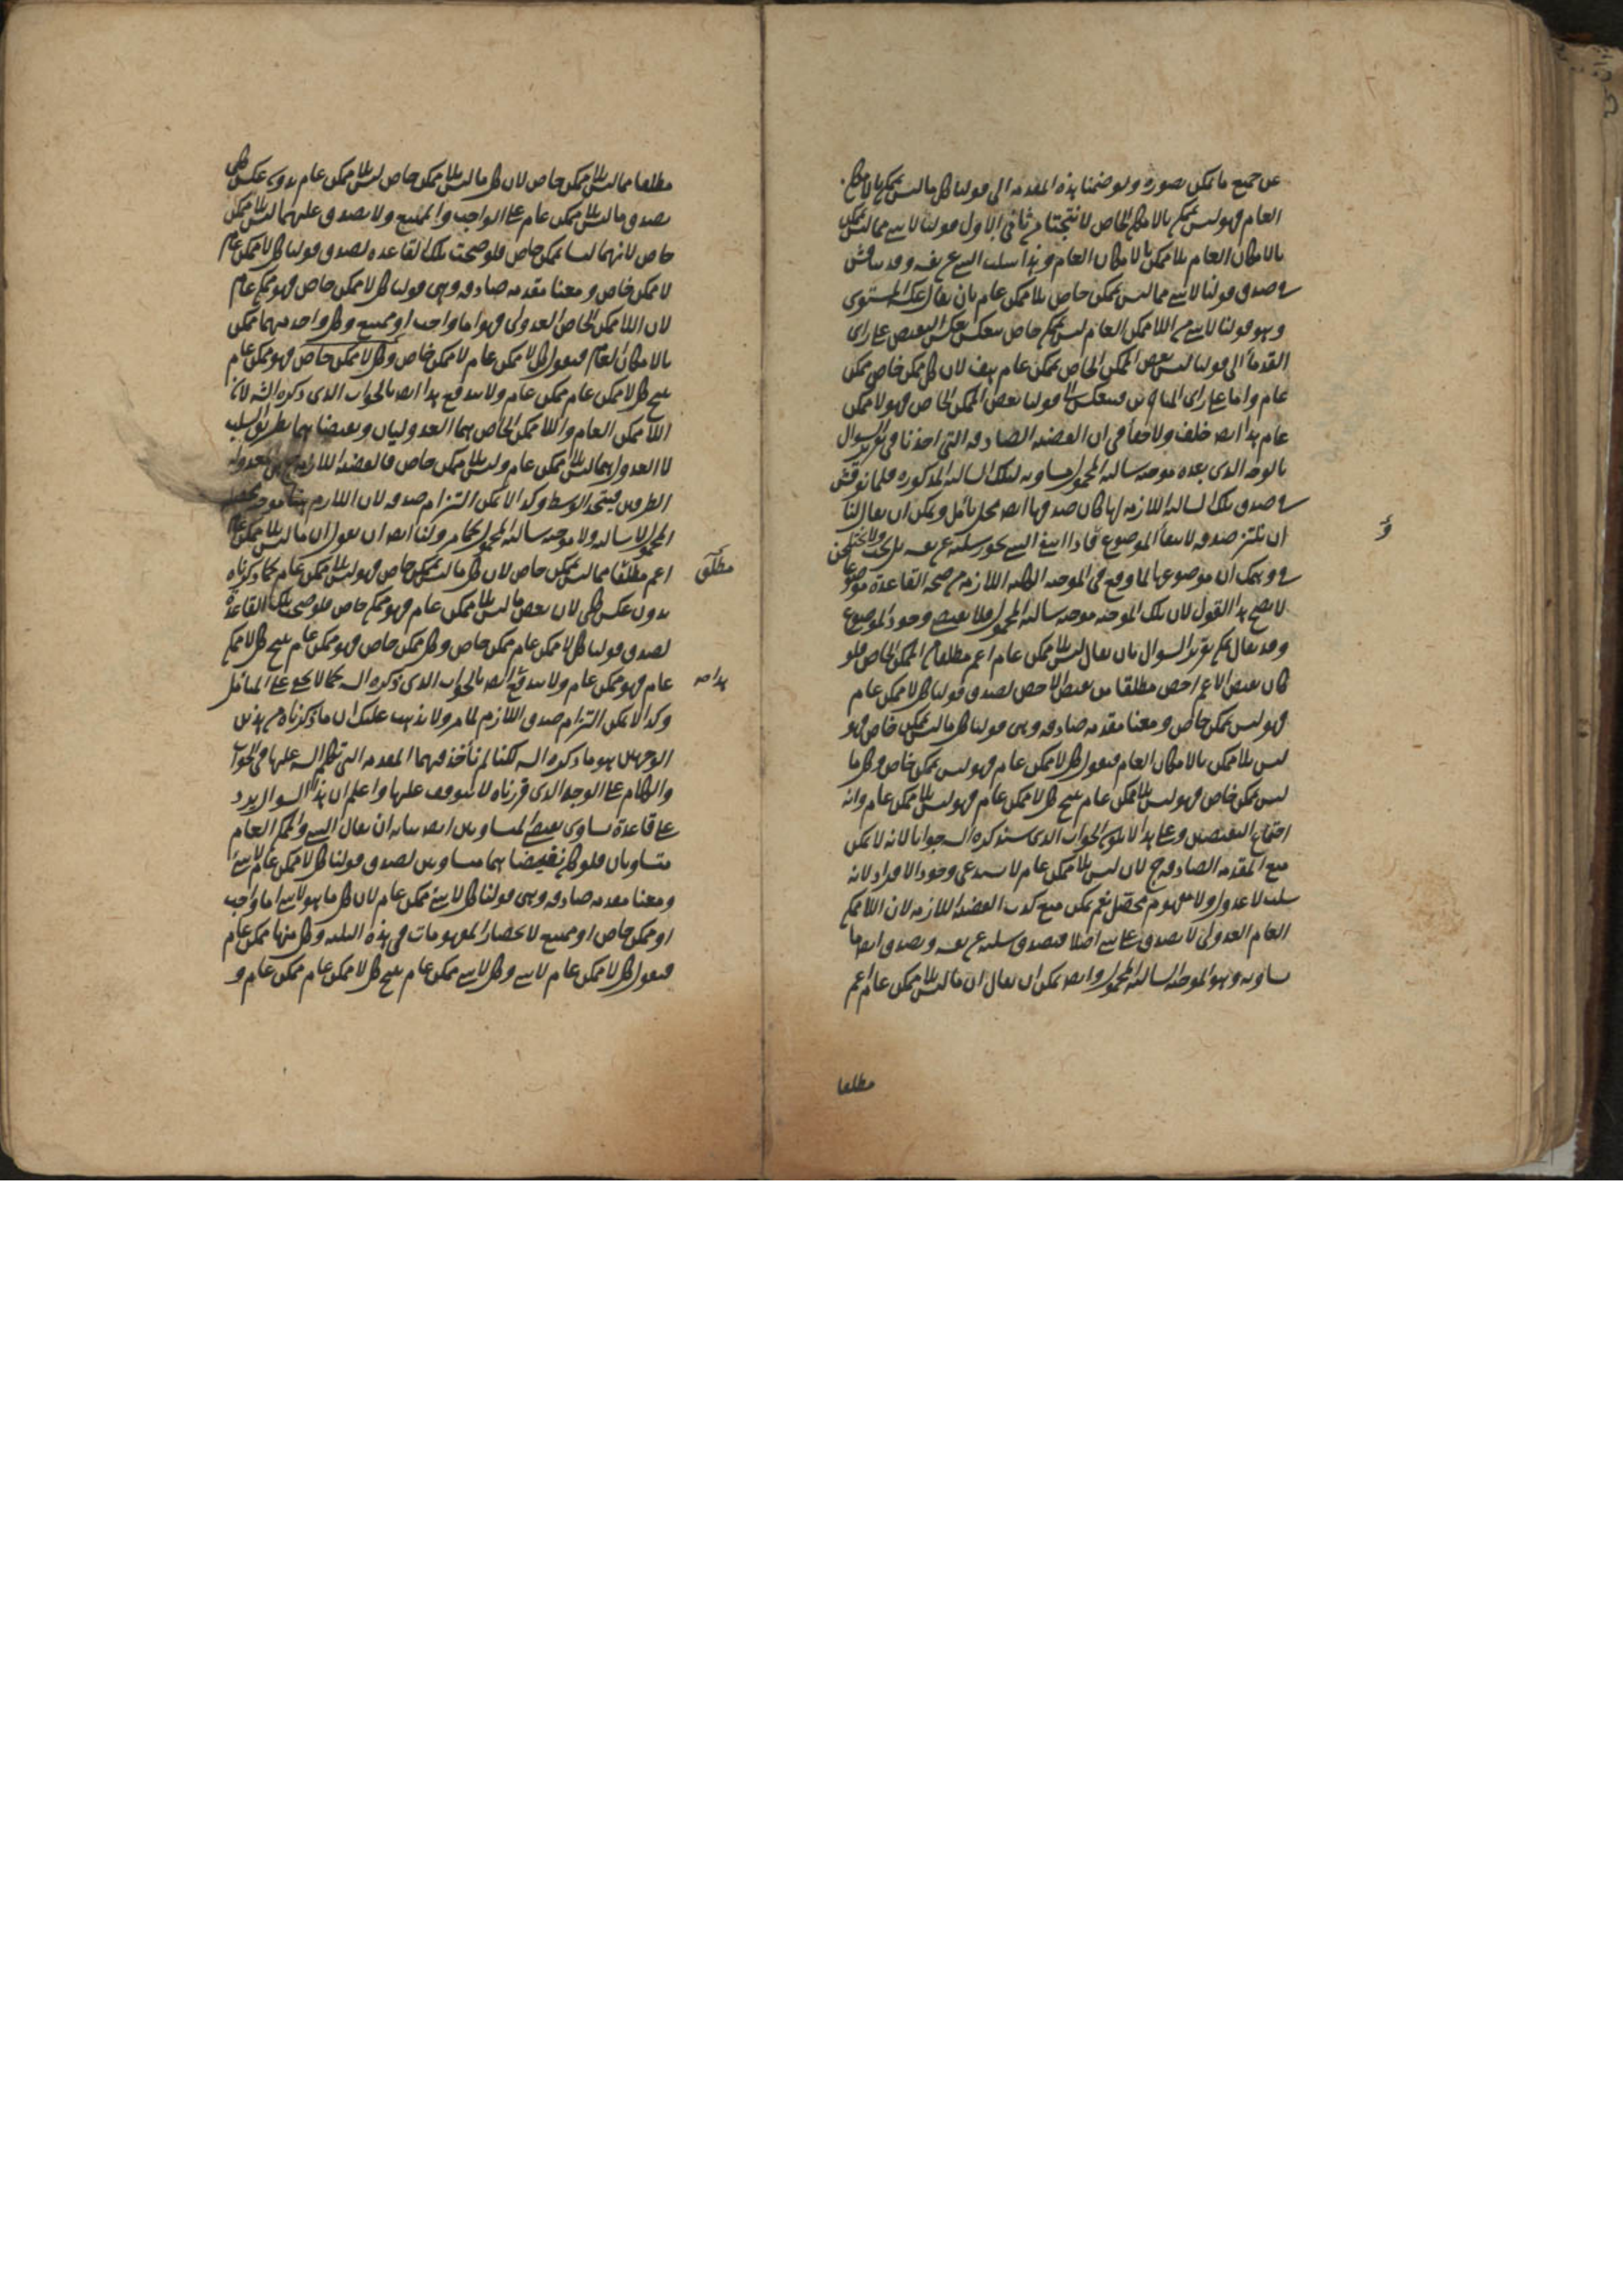 عن جميع ما يمكن تصوره ولو ضمنا هذه المقدمة الى قولنا كل ما ليس بممكن بالامكان
العام فهو ليس بممكن بالامكان الخاص لانتجتا من ثاني الاول قولنا لا شيء مما ليس بممكن
بالامكان العام بلا ممكن بالامكان العام وهذا سلب الشيء عن نفسه وقد يناقش
في صدق قولنا لا شيء مما ليس بممكن خاص بلا ممكن عام بان يقال عكسه المستوى
وهو قولنا لا شيء من اللاممكن العام ليس بممكن خاص ينعكس بعكس النقيض على راى
القدماء الى قولنا ليس بعض الممكن الخاص بممكن عام هف لان كل ممكن خاص ممكن
عام واما على راى المتاخرين فينعكس الى قولنا بعض الممكن الخاص فهو لا ممكن
عام هذا ايضا خلف ولا خفاء في ان القضية الصادقة التي اخذنا في تقرير السؤال
بالوجه الذى بعده موجبة سالبة المحمول مساوية لتلك السالبة المذكورة فلما نوقش
في صدق تلك السالبة اللازمة لها كان صدقها ايضا محل تامل ويمكن ان يقال لنا
ان نلتزم صدقه لانتفاء الموضوع فاذا انتفى الشيء يجوز سلبه عن نفسه
في وهمك ان موضوعها لما وقع في الموجبة الكلية اللازمة من صحة القاعدة موضوعا
لا يصح هذا القول لان تلك الموجبة موجبة سالبة المحمول فلا يقتضى وجود الموضوع
وقد يقال في تقرير السؤال بان يقال ليس بلا ممكن عام اعم مطلقا من الممكن الخاص فلو
كان نقيض الاعم اخص مطلقا من نقيض الاخص لصدق قولنا كل لا ممكن عام
فهو ليس بممكن خاص ومعنا مقدمة صادقة وهي قولنا كل ما ليس بممكن خاص فهو
ليس بلا ممكن بالامكان العام فنقول كل لا ممكن عام فهو ليس بممكن خاص وكل ما
ليس بممكن خاص فهو ليس بلا ممكن عام ينتج كل لا ممكن عام فهو ليس بلا ممكن عام وانه
اجتماع النقيضين وعلى هذا لا يكون الجواب الذى سنذكره جوابا لانه لا يمكن
منع المقدمة الصادقة ح لان ليس بلا ممكن عام لا يستدعى وجود الافراد لانه
سلب لا عدول ولا مفهوم محصل نعم يمكن منع كذب القضية اللازمة لان اللاممكن
العام العدولى لا يصدق على شيء اصلا فيصدق سلبه عن نفسه ويصدق ايضا ما
يساويه وهو الموجبة السالبة المحمول وايضا يمكن ان يقال ان ما ليس بلا ممكن عام اعم
مطلقا
مطلقا مما ليس بلا ممكن خاص لان كل ما ليس بلا ممكن خاص ليس بلا ممكن عام بدون عكس كلى
يصدق ما ليس بلا ممكن عام على الواجب والممتنع ولا يصدق عليهما ليس بلا ممكن
خاص لانهما ليسا بممكن خاص فلو صحت تلك القاعدة لصدق قولنا كل لا ممكن عام
لا ممكن خاص ومعنا مقدمة صادقة وهي قولنا كل لا ممكن خاص فهو ممكن عام
لان اللاممكن الخاص العدولى فهو اما واجب او ممتنع وكل واحد منهما ممكن
بالامكان العام فنقول كل لا ممكن عام لا ممكن خاص وكل لا ممكن خاص فهو ممكن عام
ينتج كل لا ممكن عام ممكن عام ولا يندفع هذا ايضا بالجواب الذى ذكره الش لان
اللاممكن العام واللاممكن الخاص هما العدوليان ونقيضاهما بطريق السلب
لا العدول هما ليس بلا ممكن عام وليس بلا ممكن خاص فالقضية اللازمة هي معدولة
الطرفين فيتحد الوسط وكذا لا يمكن التزام صدقه لان اللازم هنا موجبة محصلة
المحمول لا سالبة ولا موجبة سالبة المحمول كما مر ولنا ايضا ان نقول ان ما ليس بلا ممكن عام
اعم مطلقا مما ليس بممكن خاص لان كل ما ليس بممكن خاص فهو ليس بلا ممكن عام كما ذكرناه
بدون عكس كلى لان بعض ما ليس بلا ممكن عام فهو ممكن خاص فلو صحت تلك القاعدة
لصدق قولنا كل لا ممكن عام ممكن خاص وكل ممكن خاص فهو ممكن عام ينتج كل لا ممكن
عام فهو ممكن عام ولا يندفع ايضا بالجواب الذى ذكره الش كما لا يخفى على المتامل
وكذا لا يمكن التزام صدق اللازم لما مر ولا يذهب عليك ان ما ذكرناه من هذين
الوجهين هو ما ذكره الش لكنا لم ناخذ فيهما المقدمة التي تكلم الش عليها في الجواب
والكلام على الوجه الذى قررناه لا يتوقف عليها واعلم ان هذا السؤال يرد
على قاعدة تساوى نقيضى المتساويين ايضا بيانه ان يقال الشيء والممكن العام
متساويان فلو كان نقيضاهما متساويين لصدق قولنا كل لا ممكن عام لا شيء
ومعنا مقدمة صادقة وهي قولنا كل لا شيء ممكن عام لان كل ما هو لا شيء اما واجب
او ممكن خاص او ممتنع لانحصار المفهومات في هذه الثلثة وكل منها ممكن عام
فنقول كل لا ممكن عام لا شيء وكل لا شيء ممكن عام ينتج كل لا ممكن عام ممكن عام و